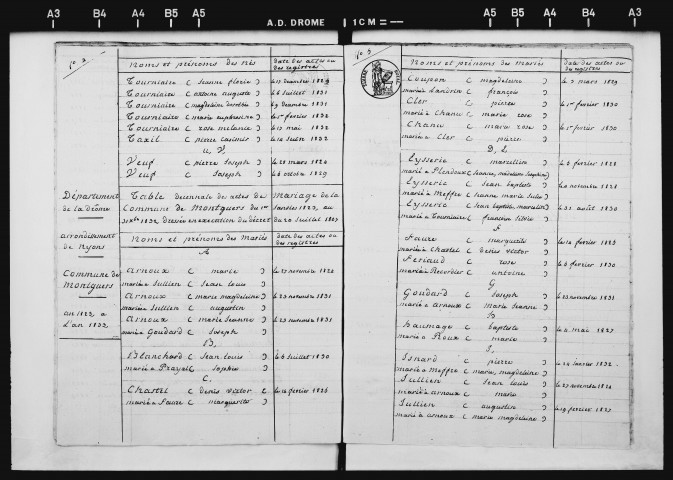 A3 B4 A4 B5 A5 A.D. DROME 1CM A5 B5 A4 B4 A3
fo 2
Noms et prénoms des nés
date des actes ou des registres
Tourniaire ( jeanne florie )
Tourniaire ( antoine auguste ) le 6 juillet 1831
Tourniaire ( magdeleine dorothée ) le 9 decembre 1831
Tourniaire ( marie euphrosine ) le 1er fevrier 1832
Tourniaire ( rose melanie ) mai 1832
Taxil ( pierre casimir ) 1832
u, V.
Veuf ( pierre joseph ) le 28 mars 1824
Veuf ( joseph ) le 6 octobre 1829
Département de la drôme
arrondissement de nyons
Commune de montguers
an 1823 a l'an 1832
Table decennale des actes de Mariage de la
Commune de Montguers du 1er janvier 1823, au
31 xbre 1832 dressée en execution du décret du 20 juillet 1807
Noms et prénoms des Mariés
date des actes ou des registres
A
arnoux ( marie )
mariée a jullien ( jean louis )
arnoux ( marie magdeleine ) le 23 novembre 1831
mariée a jullien ( augustin )
arnoux ( marie jeanne ) le 23 novembre 1831
mariée a Goudard ( joseph )
B,
Blanchard ( jean louis ) le 6 juillet 1830
marié a Prayal ( sophie )
C,
Chastel ( denis victor ) fevrier 1825
marié a faure ( marguerite )
fo 3
Noms et prénoms des mariés
date des actes ou des registres
Coupon ( magdeleine ) le 3 mars 1829
mariée a Landrin ( françois )
Cler ( pierre ) le 1er fevrier 1830
marié a Chanu ( marie rose )
Chanu ( marie rose ) le 1er fevrier 1830
mariée a Cler ( pierre )
D, E
Eysseric ( marcellin ) le 6 fevrier 1828
marié a
Eysseric ( jean baptiste ) novembre 1828
marié a Meffre ( jeanne marie julie )
Eysseric ( jean baptiste marcelin ) le 31 août 1830
marié a Tourniaire ( françoise silvie )
f
faure ( marguerite ) fevrier 1825
mariée a Chastel ( denis victor )
feriaud ( rose ) le 6 fevrier 1830
mariée a Recordier ( antoine )
G
Goudard ( joseph ) le 23 novembre 1831
marié a arnoux ( marie jeanne )
h
haumage ( baptiste ) le 2 mai 1827
marié a Roux ( marie )
J,
Isnard ( pierre ) le 24 janvier 1832
marié a Meffre ( marie magdeleine )
Jullien ( jean louis )
marié a arnoux ( marie )
Jullien ( augustin ) fevrier
marié a arnoux ( marie magdeleine )